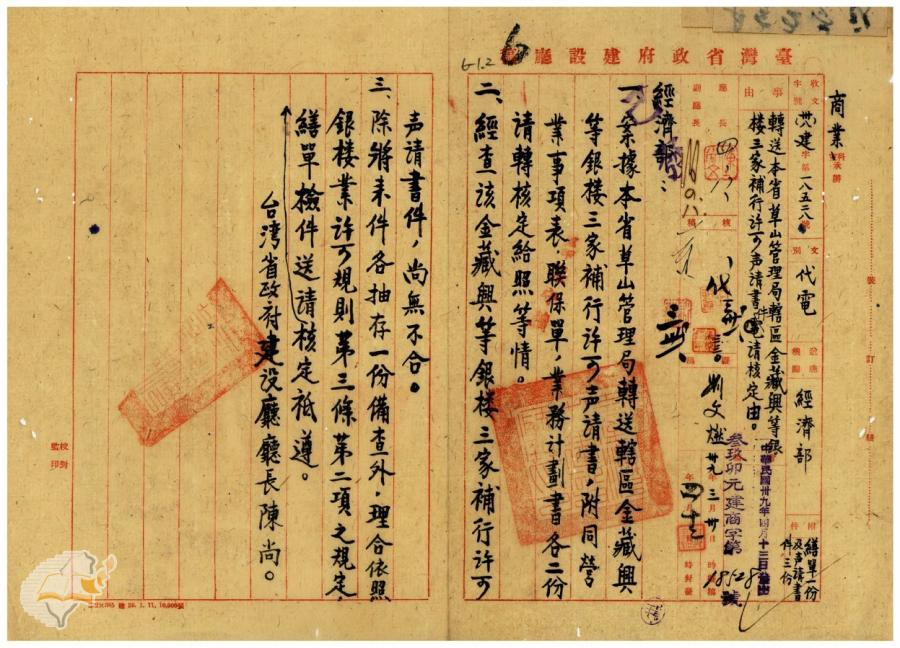 臺灣省政府建設廳
6-1.2
商業
科承辦
收文字號
建字第一八五二八號
文別 代電
送達機關 經濟部
附件 繕單一份及声請書件三份
事由
轉送本省草山管理局轄區金藏興等銀
楼三家補行許可声請書件電請核定由。
廳長
副廳長
核稿
叁玖卯元建商字第18528號
中華民國卅九年四月十三日發出
年三月卅日
經濟部:
一、案據本省草山管理局轉送轄區金藏興
等銀楼三家補行許可声請書,附同營
業事項表,聯保單,業務計劃書各二份
請轉核定給照等情。
二、經查該金藏興等銀楼三家補行許可
声請書件,尚無不合。
三、除將来件各抽存一份備查外,理合依照
銀楼業許可規則第三條第二項之規定,
繕單檢件送請核定祗遵。
台湾省政府建设廳廳長陳尚。
校對
監印
裝
訂
線